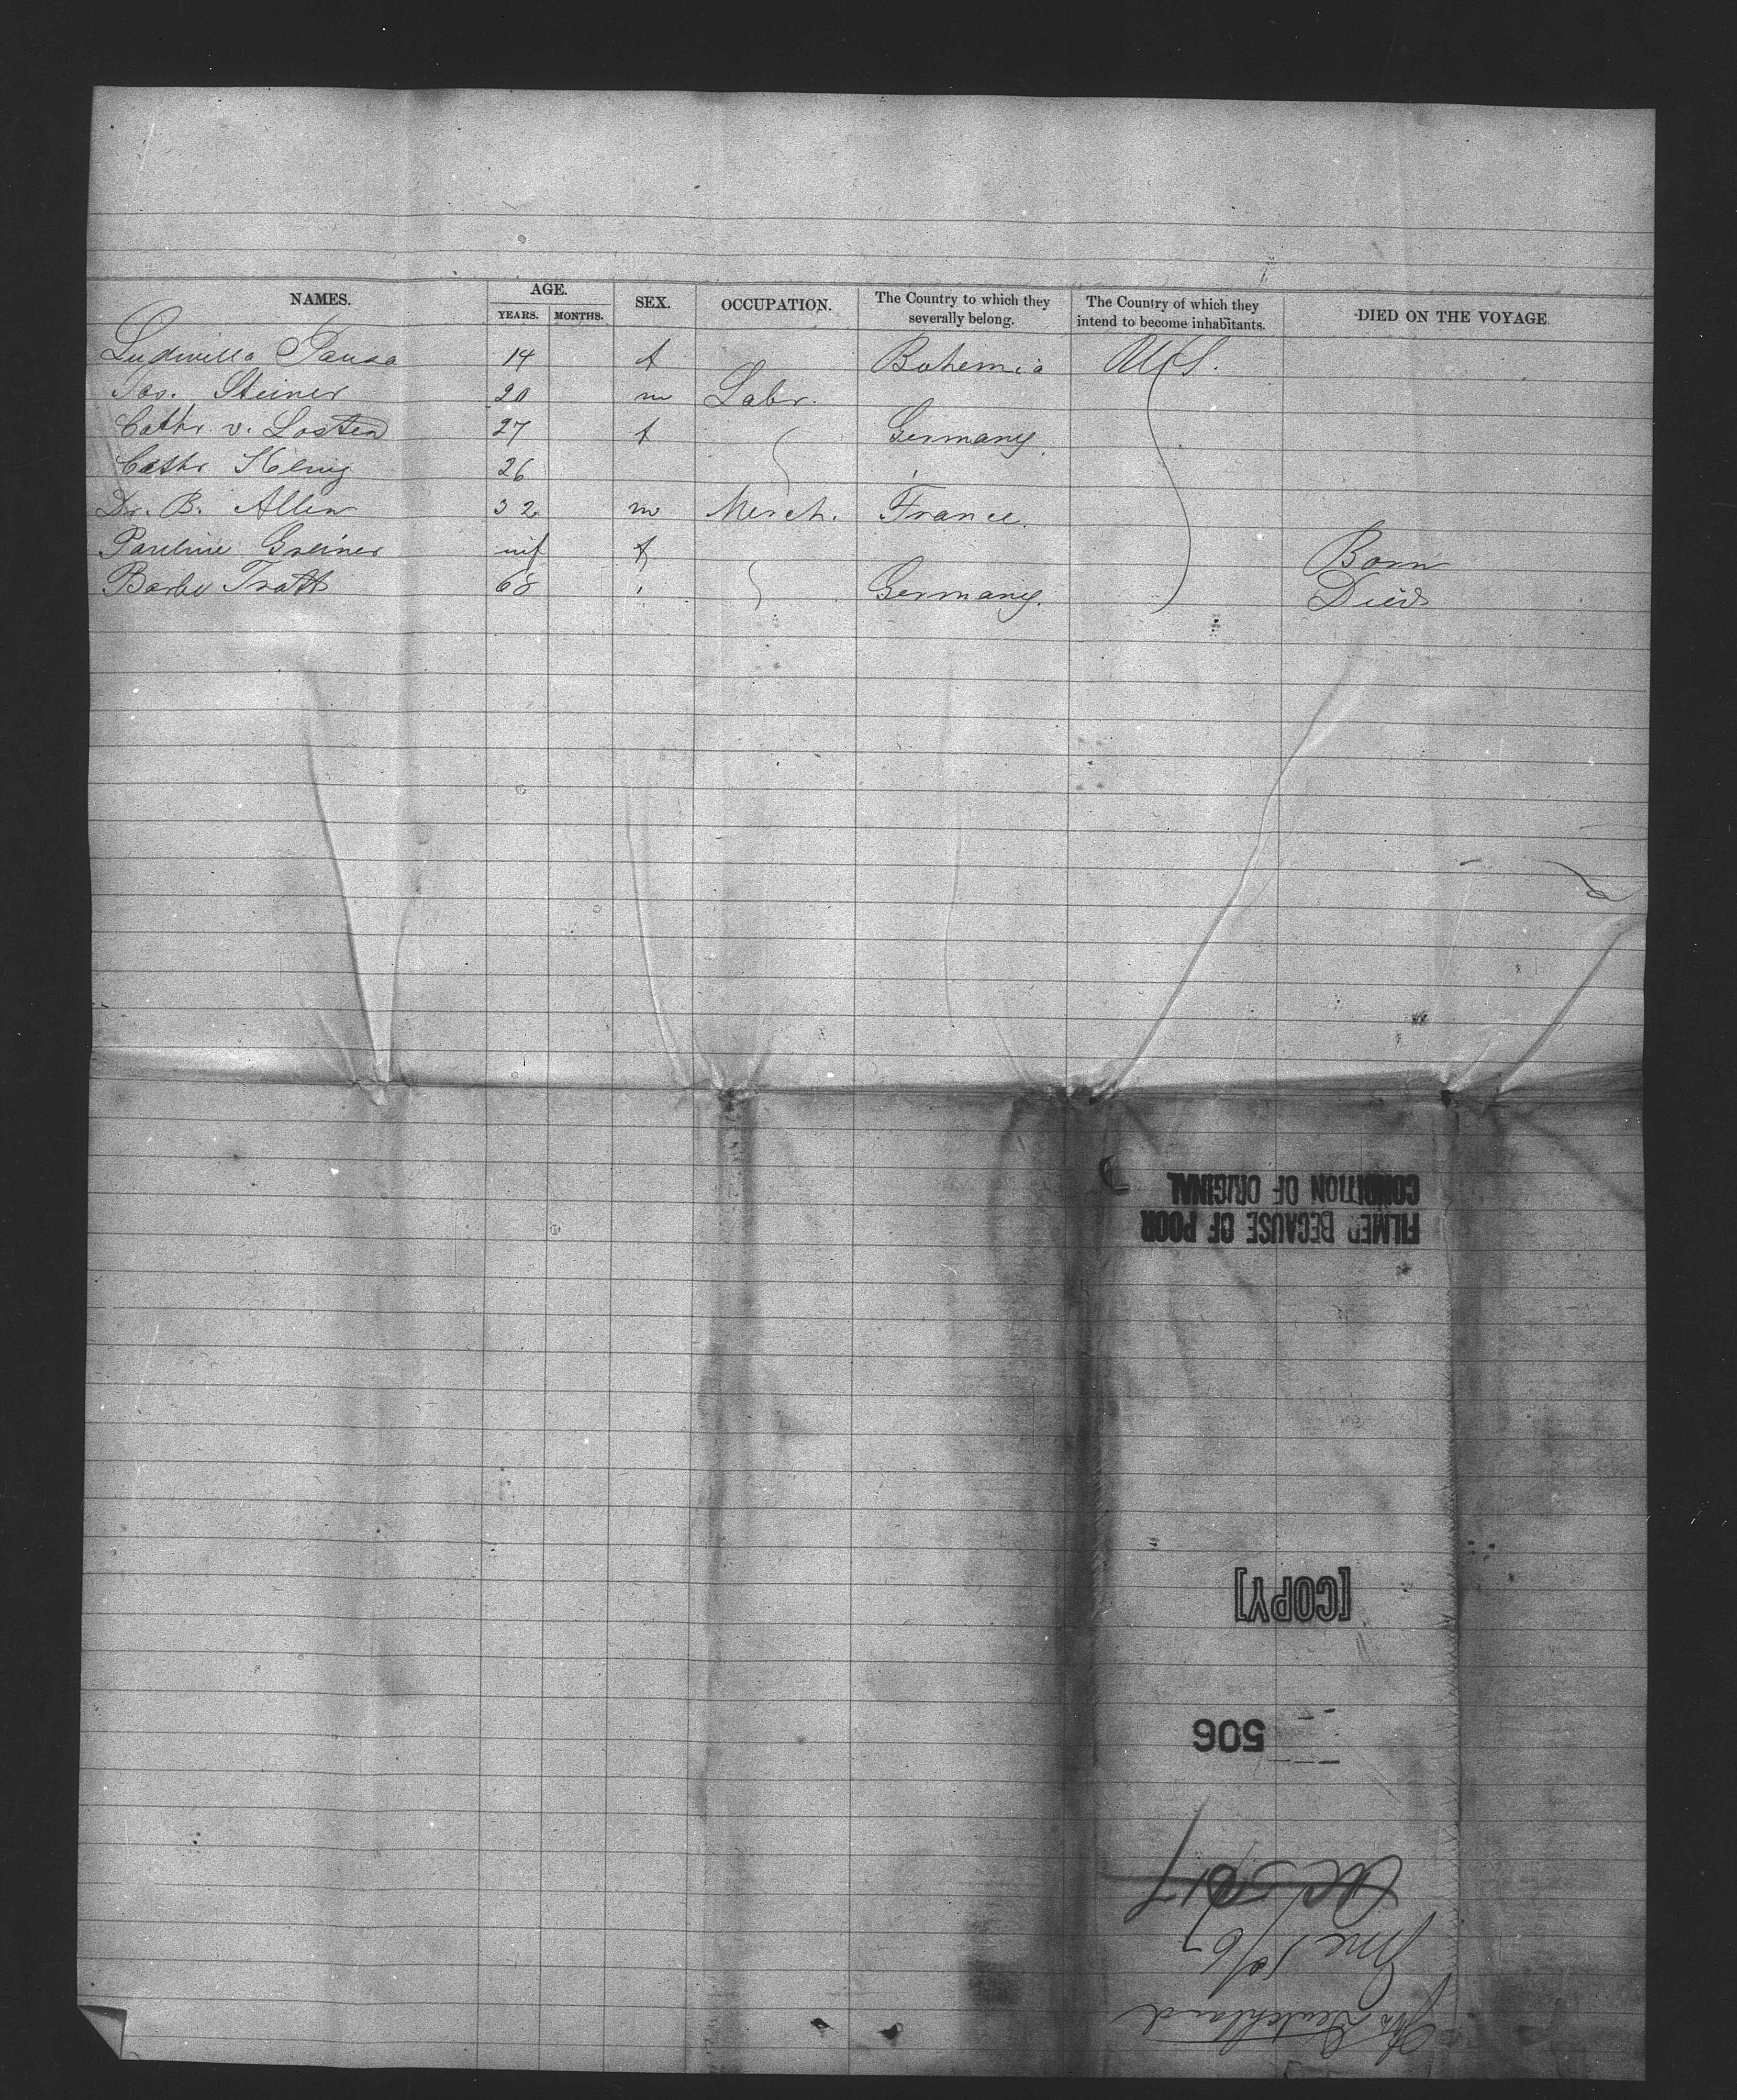 NAMES. AGE. SEX. OCCUPATION. The Country to which they severally belong. The Country of which they intend to become inhabitants. DIED ON THE VOYAGE.
YEARS. MONTHS.
Ludmilla Pausa 14 f Bohemia U.S.
Jos. Steiner 20 m Labr.
Cathr. v. Losten 27 f Germany
Cathr 26
Dr. B. Allen 32 m Merch. France.
Pauline Greiner inf f Born
Barbe Tratt 68 " Germany. Died
FILMED BECAUSE OF POOR
CONDITION OF ORIGINAL
[COPY]
506
June 10/67
Deutchland